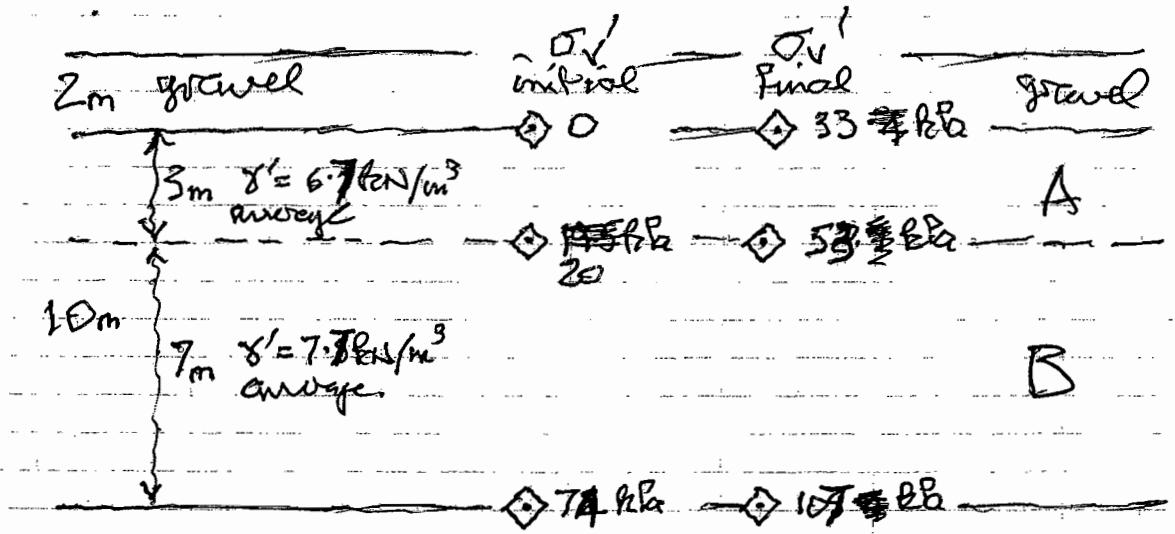 σv' σv'
2m gravel initial final gravel
0 33 kPa
3m γ' = 6.7 kN/m³ A
average
kPa 53 kPa
20
10m
7m γ' = 7.7 kN/m³ B
average.
74 kPa 107 kPa